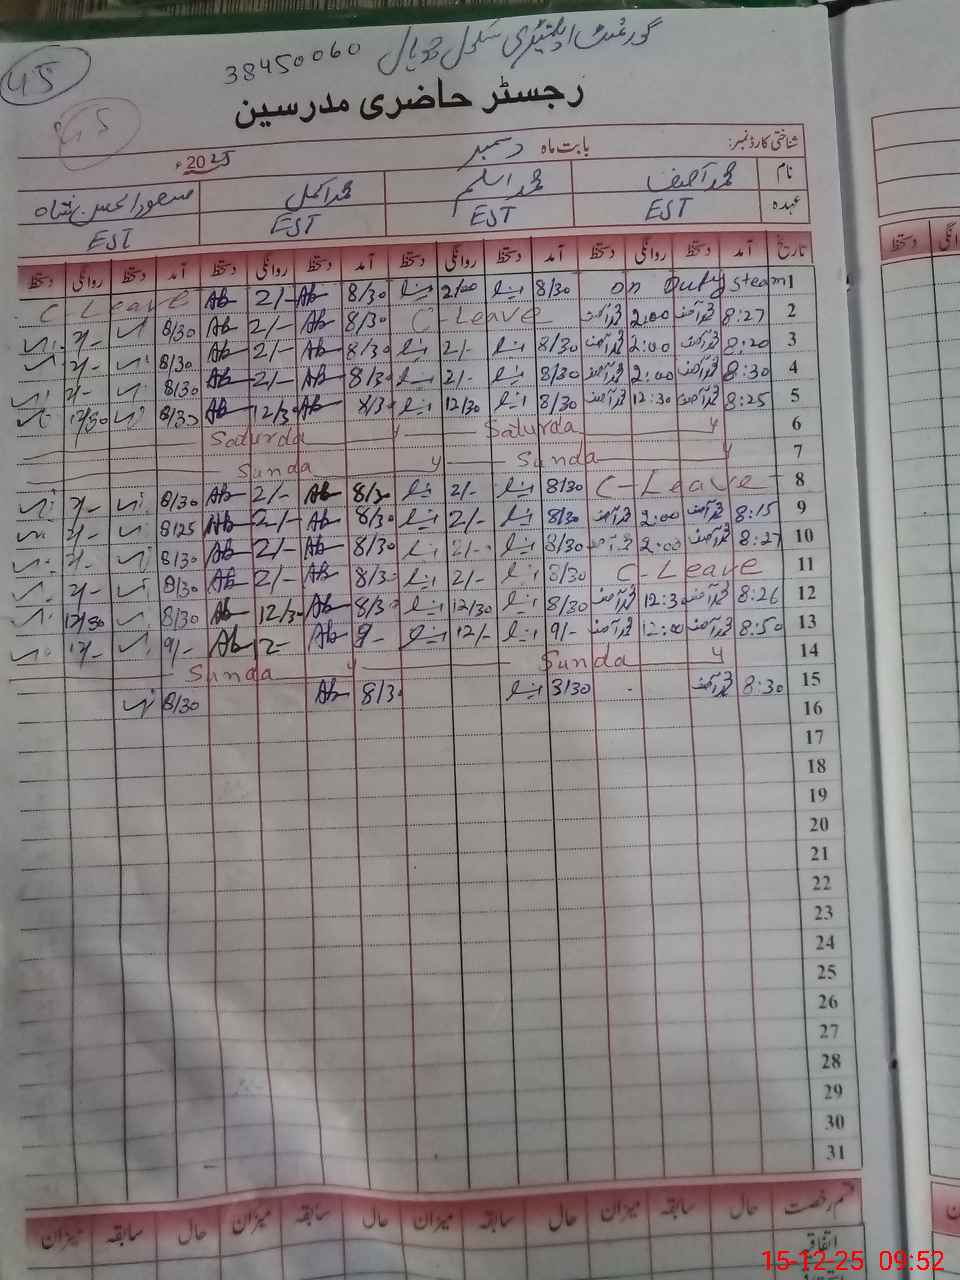 45
38450060 گورنمنٹ ایلیمنٹری سکول
رجسٹر حاضری مدرسین
شناختی کارڈ نمبر: بابت ماہ دسمبر 2025ء
نام محمد آصف محمد اسلم محمد اکمل
عہدہ EST EST EST EST
تاریخ آمد دستخط روانگی دستخط آمد دستخط روانگی دستخط آمد دستخط روانگی دستخط آمد دستخط روانگی دستخط
1 on Duty Steam 8/30 2/00 8/30 Ab 2/- Ab C Leave
2 8:27 محمد آصف 2:00 محمد آصف C-Leave 8/30 Ab 2/- Ab 8/30 2/-
3 8:20 محمد آصف 2:00 محمد آصف 8/30 2/- 8/30 Ab 2/- Ab 8/30 2/-
4 8:30 محمد آصف 2:00 محمد آصف 8/30 2/- 8/30 Ab 2/- Ab 8/30 2/-
5 8:25 محمد آصف 12:30 محمد آصف 8/30 12/30 8/30 Ab 12/30 Ab 8/30 12/30
6 Saturda y Saturda y
7 Sunda y Sunda y
8 C-Leave 8/30 2/- 8/30 Ab 2/- Ab 8/30 2/-
9 8:15 محمد آصف 2:00 محمد آصف 8/30 2/- 8/30 Ab 2/- Ab 8125 2/-
10 8:27 محمد آصف 2:00 محمد آصف 8/30 2/- 8/30 Ab 2/- Ab 8/30 2/-
11 C-Leave 8/30 2/- 8/30 Ab 2/- Ab 8/30 2/-
12 8:26 محمد آصف 12:3 محمد آصف 8/30 12/30 8/30 Ab 12/30 Ab 8/30 12/30
13 8:50 محمد آصف 12:00 محمد آصف 9/- 12/- 9- Ab 2- Ab 9/- 12/-
14 Sunda y Sunda y
15 8:30 محمد آصف 8/30 8/30 Ab 8/30
16
17
18
19
20
21
22
23
24
25
26
27
28
29
30
31
قسم رخصت حال سابقہ میزان حال سابقہ میزان حال سابقہ میزان حال سابقہ میزان
اتفاقیہ
15-12-25 09:52